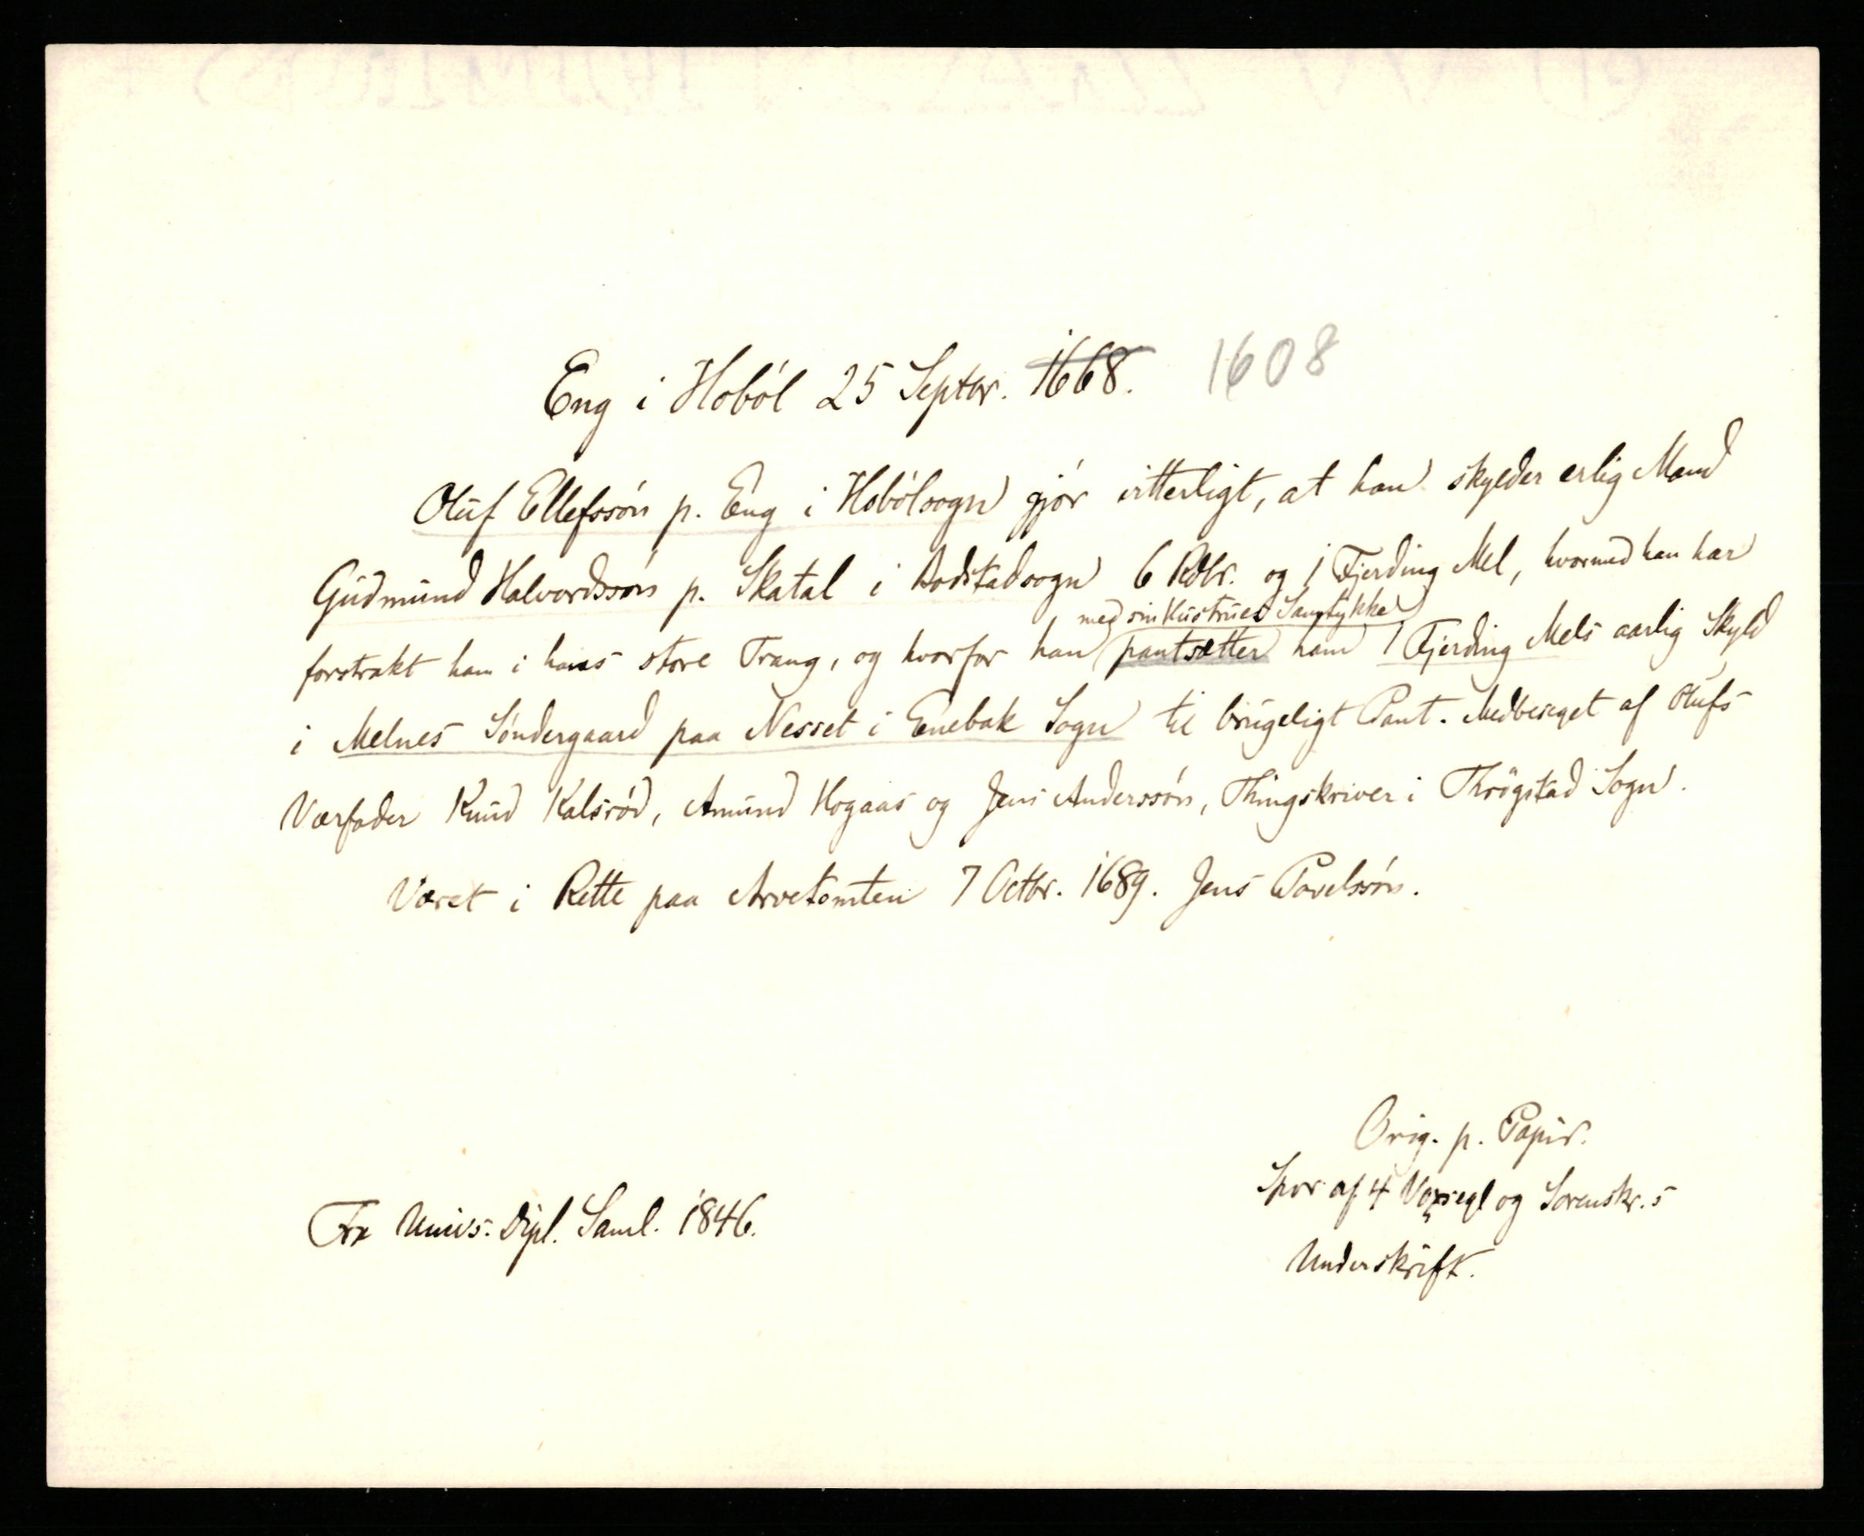 Eng i Hoból 25 Septbr. 1668. 1608
Oluf Ellefssón p. Eng i Hobólsogn gjór vitterligt, at han skylder erlig Mand
Gudmund Halvordssón p. Skatal i Aodstadsogn 6 Rdlr. og 1 Fjerding Mel, hvormed han har
med sin Hustrues Samtykke
forstrakt ham i hans store Trang, og hvorfor han pantsætter ham 1 Fjerding Mels aarlig Skyld
i Melnes Sóndergaard paa Nesset i Enebak Sogn til brugeligt Pant. Medbeseglet af Olufs
Værfader Knud Kalsród, Amund Hogaas og Jens Anderssón, Thingskriver i Thrógstad Sogn.
Været i Rette paa Arvetomten 7 Octbr. 1689. Jens Povelssón.
Orig. p. Papir.
Spor af 4 Voxsegl og Sorenskr.s
Underskrift.
Fra Univs. Dipl. Saml. 1846.